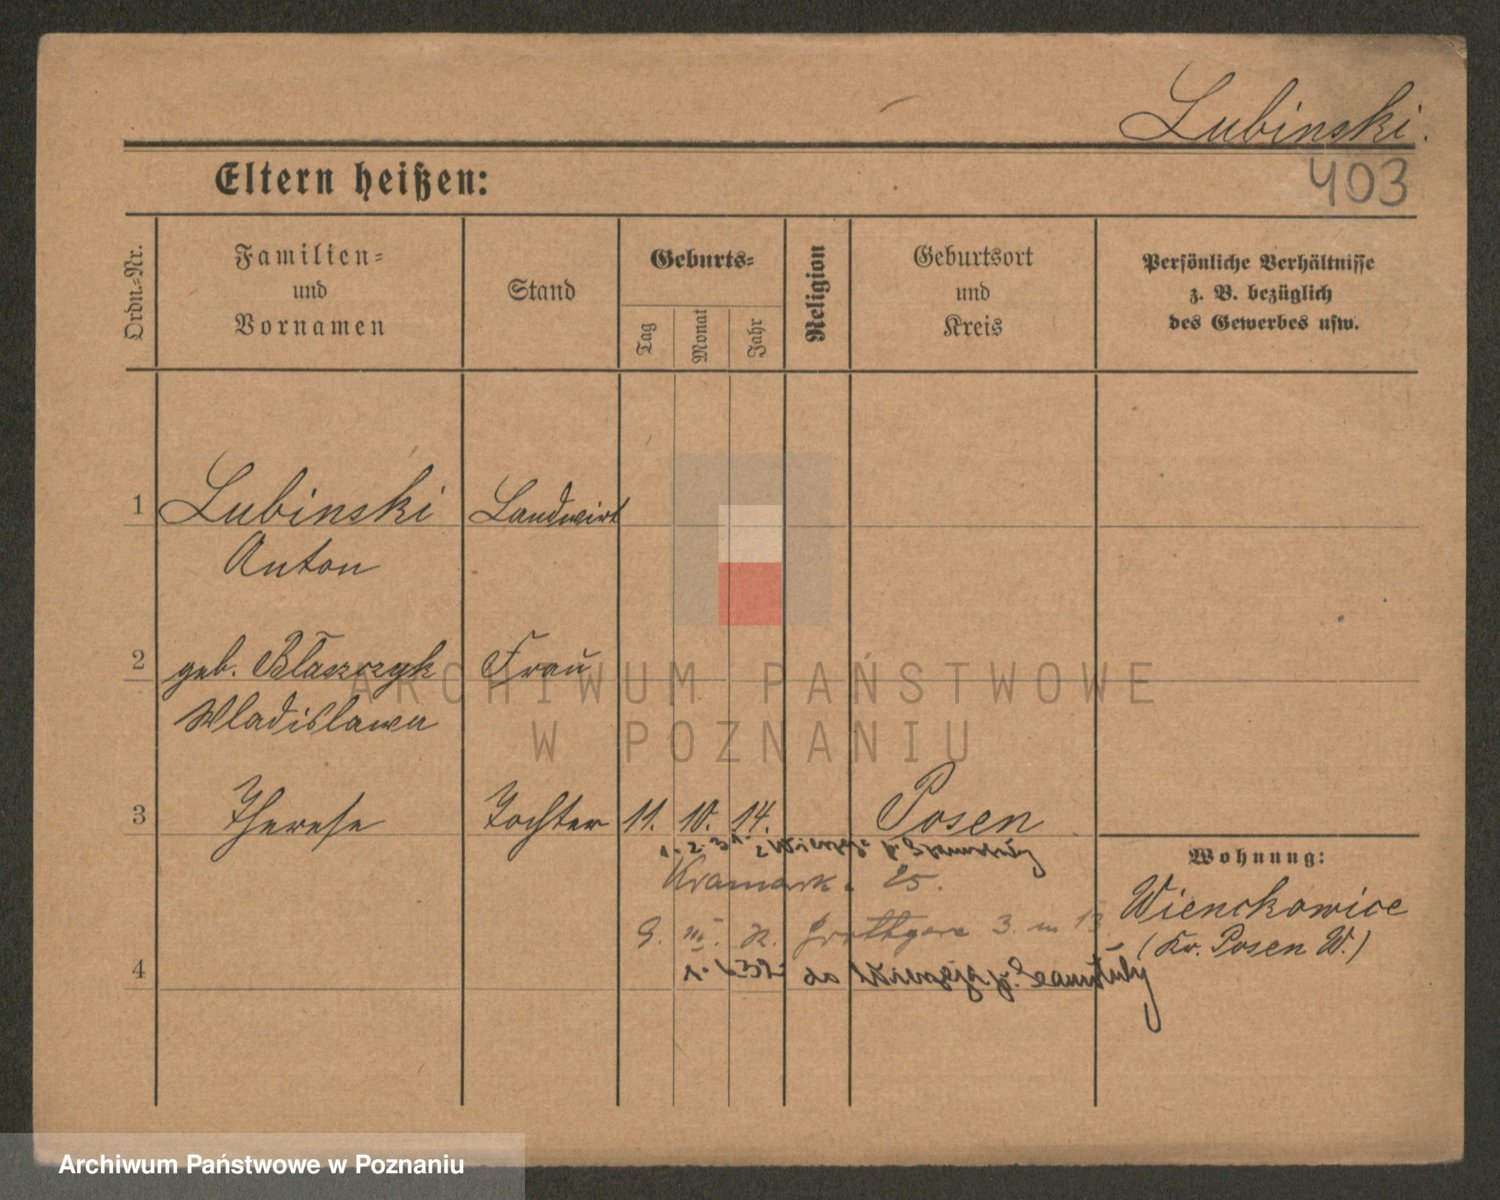 Lubinski.
403
Eltern heißen:
Ordn.-Nr.
Familien-
und
Vornamen
Stand
Geburts-
Tag
Monat
Jahr
Religion
Geburtsort
und
Kreis
Persönliche Verhältnisse
z. B. bezüglich
des Gewerbes usw.
1 Lubinski Landwirt
Anton
2 geb. Błaszczyk Frau
Wladislawa
3 Therese Tochter 11. 10. 14. Posen
1. 2. 31. z
Kramark. 25.
Wohnung:
Wienckowice
(Kr. Posen W.)
Grottgera 3. m 13
4
do p. Szamotuły
ARCHIWUM PAŃSTWOWE
W POZNANIU
Archiwum Państwowe w Poznaniu